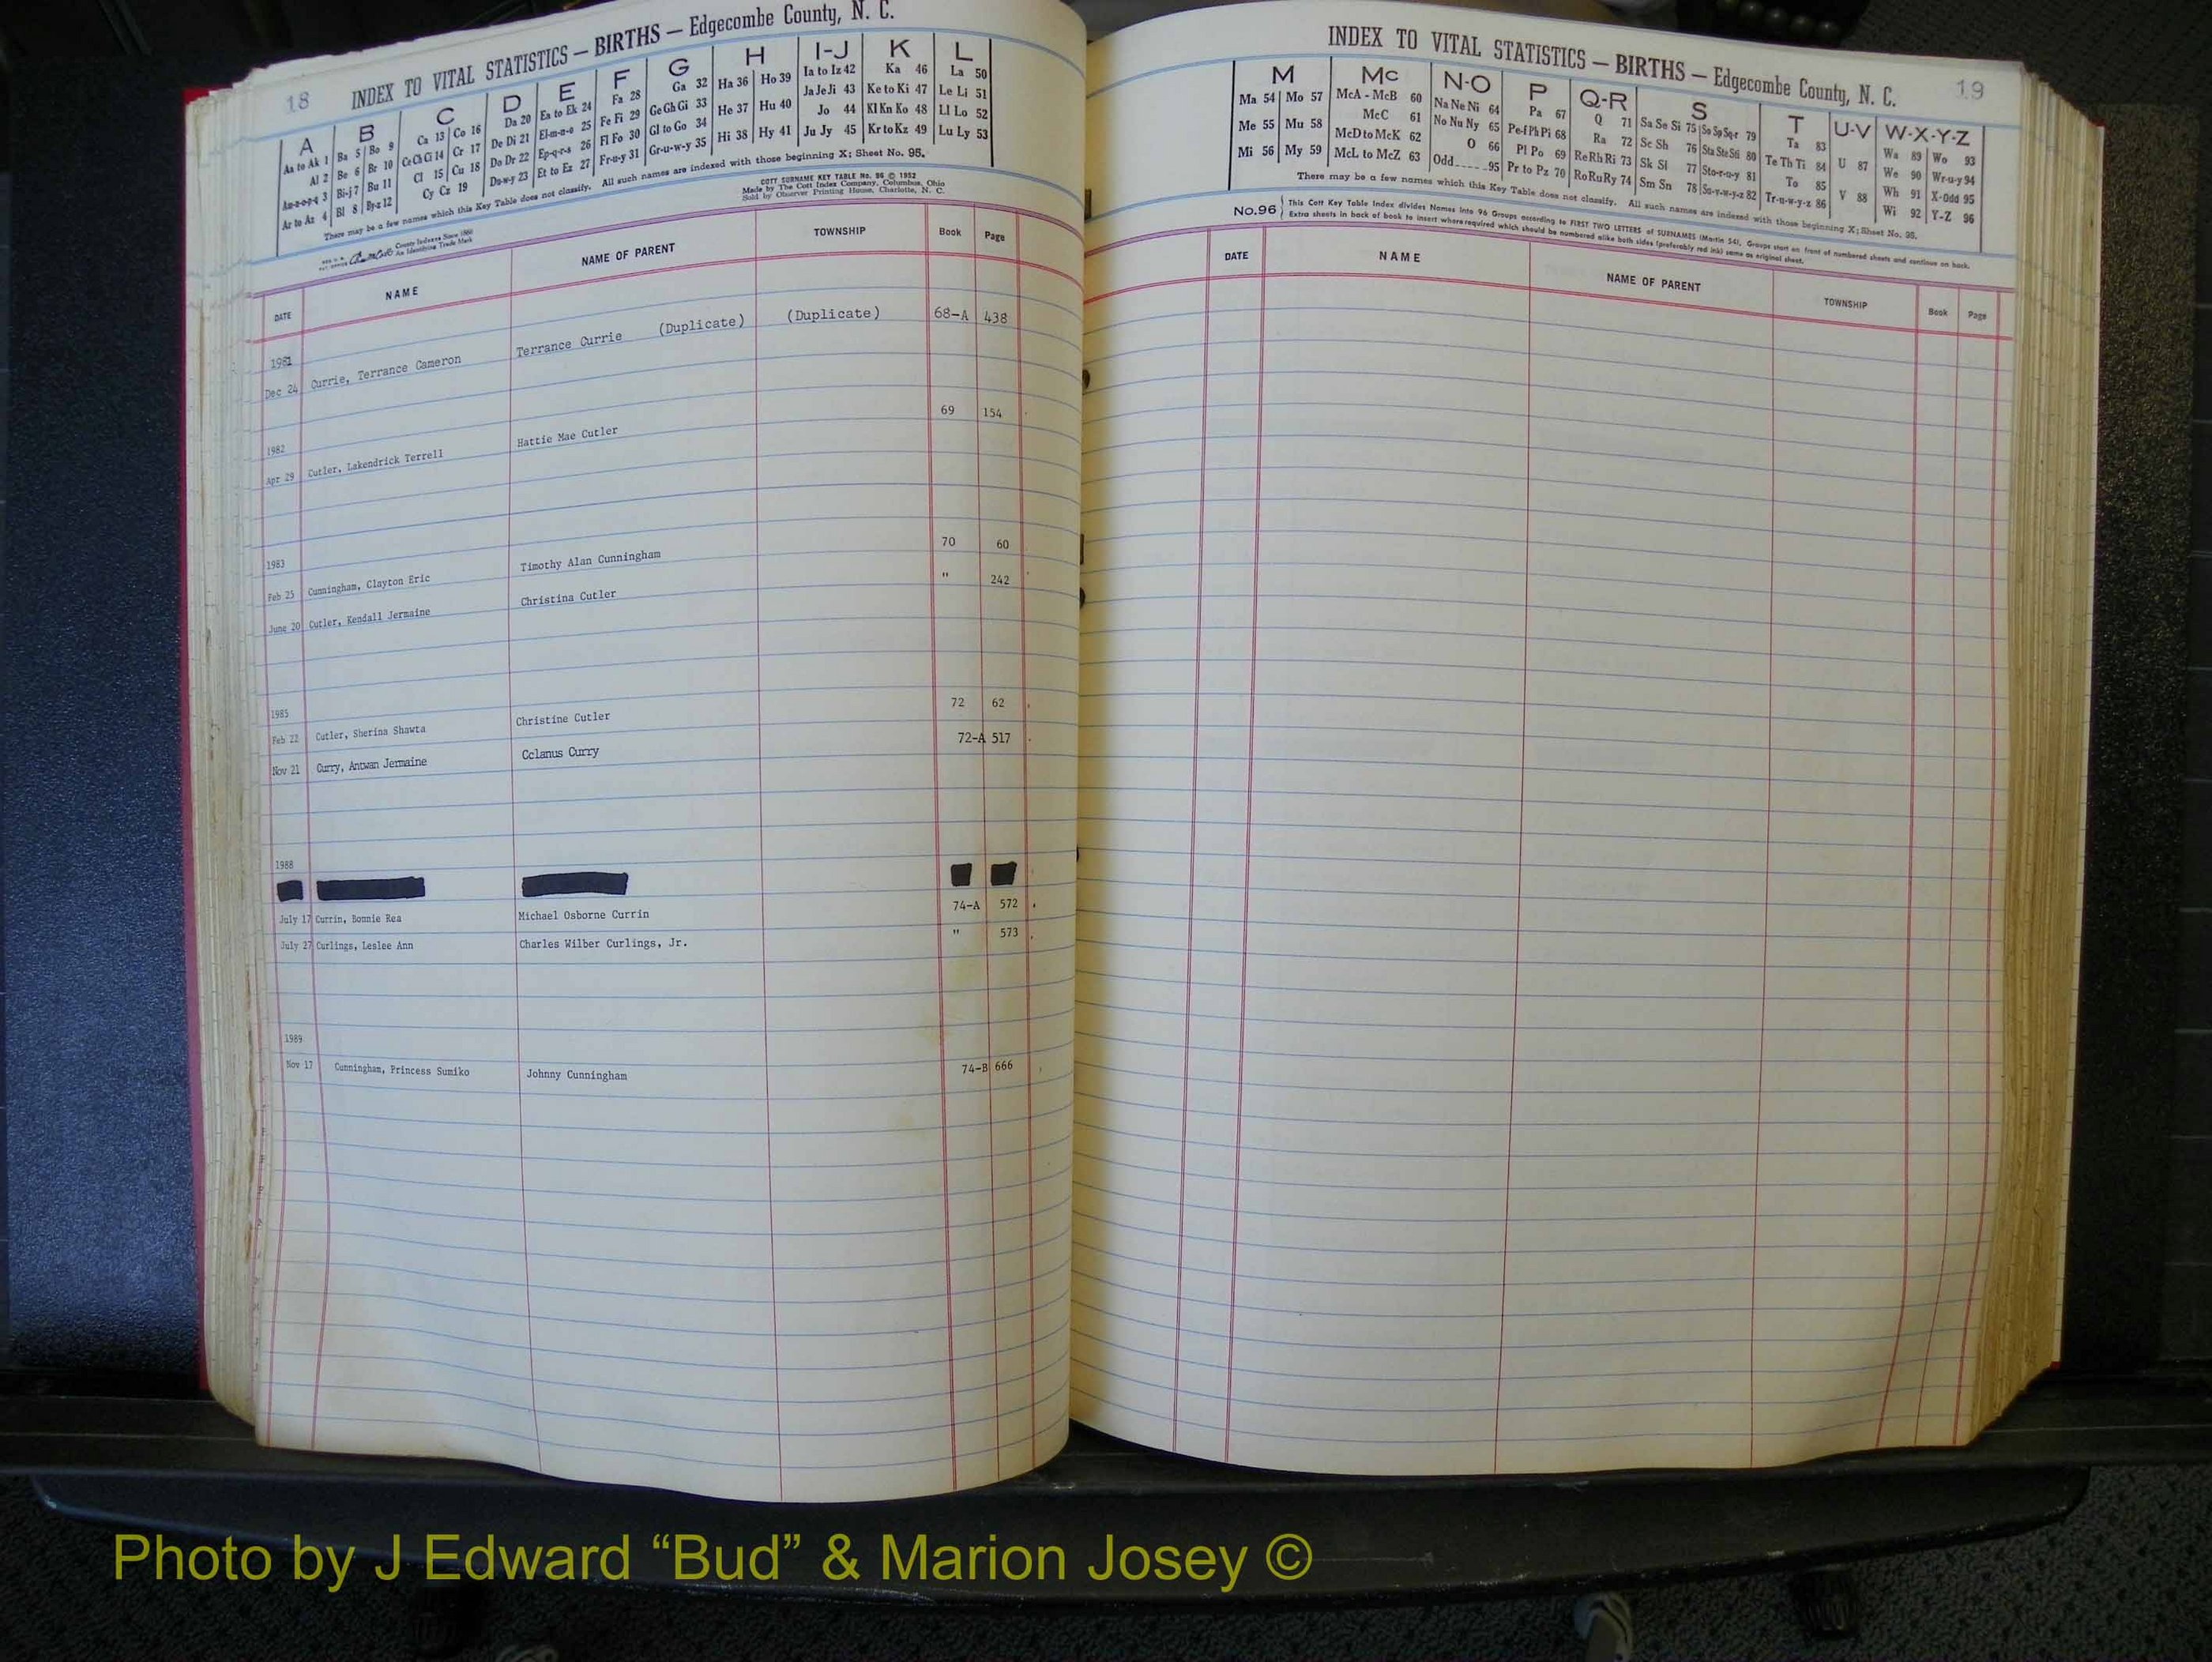 18 INDEX TO VITAL STATISTICS — BIRTHS — Edgecombe County, N. C.
A B C D E F G H I-J K L
Aa to Ak 1 Ba 5 Bo 9 Ca 13 Co 16 Da 20 Ea to Ek 24 Fa 28 Ga 32 Ha 36 Ho 39 Ia to Iz 42 Ka 46 La 50
Al 2 Be 6 Br 10 Ce Ch Ci 14 Cr 17 De Di 21 El-m-n-o 25 Fe Fi 29 Ge Gh Gi 33 He 37 Hu 40 Ja Je Ji 43 Ke to Ki 47 Le Li 51
Am-n-o-p-q 3 Bi-j 7 Bu 11 Cl 15 Cu 18 Do Dr 22 Ep-q-r-s 26 Fl Fo 30 Gl to Go 34 Hi 38 Hy 41 Jo 44 Kl Kn Ko 48 Ll Lo 52
Ar to Az 4 Bl 8 By-z 12 Cy Cz 19 Du-w-y 23 Et to Ez 27 Fr-u-y 31 Gr-u-w-y 35 Ju Jy 45 Kr to Kz 49 Lu Ly 53
There may be a few names which this Key Table does not classify. All such names are indexed with those beginning X; Sheet No. 95.
COTT SURNAME KEY TABLE No. 96 © 1952
Made by The Cott Index Company, Columbus, Ohio
Sold by Observer Printing House, Charlotte, N. C.
County Indexes Since 1888
An Identifying Trade Mark
DATE NAME NAME OF PARENT TOWNSHIP Book Page
1981
Dec 24 Currie, Terrance Cameron Terrance Currie (Duplicate) (Duplicate) 68-A 438
1982
Apr 29 Cutler, Lakendrick Terrell Hattie Mae Cutler 69 154
1983
Feb 25 Cunningham, Clayton Eric Timothy Alan Cunningham 70 60
June 20 Cutler, Kendall Jermaine Christina Cutler " 242
1985
Feb 22 Cutler, Sherina Shawta Christine Cutler 72 62
Nov 21 Curry, Antwan Jermaine Cclanus Curry 72-A 517
1988
July 17 Currin, Bonnie Rea Michael Osborne Currin 74-A 572
July 27 Curlings, Leslee Ann Charles Wilber Curlings, Jr. " 573
1989
Nov 17 Cunningham, Princess Sumiko Johnny Cunningham 74-B 666
INDEX TO VITAL STATISTICS — BIRTHS — Edgecombe County, N. C. 19
M Mc N-O P Q-R S T U-V W-X-Y-Z
Ma 54 Mo 57 McA - McB 60 Na Ne Ni 64 Pa 67 Q 71 Sa Se Si 75 So Sp Sq-r 79 Ta 83 U 87 Wa 89 Wo 93
Me 55 Mu 58 McC 61 No Nu Ny 65 Pe-f Ph Pi 68 Ra 72 Sc Sh 76 Sta Ste Sti 80 Te Th Ti 84 V 88 We 90 Wr-u-y 94
Mi 56 My 59 McD to McK 62 O 66 Pl Po 69 Re Rh Ri 73 Sk Sl 77 Sto-r-u-y 81 To 85 Wh 91 X-Odd 95
McL to McZ 63 Odd-----95 Pr to Pz 70 Ro Ru Ry 74 Sm Sn 78 Su-v-w-y-z 82 Tr-u-w-y-z 86 Wi 92 Y-Z 96
There may be a few names which this Key Table does not classify. All such names are indexed with those beginning X; Sheet No. 95.
No. 96 This Cott Key Table Index divides Names into 96 Groups according to FIRST TWO LETTERS of SURNAMES (Martin 54). Groups start on front of numbered sheets and continue on back.
Extra sheets in back of book to insert where required which should be numbered alike both sides (preferably red ink) same as original sheet.
DATE NAME NAME OF PARENT TOWNSHIP Book Page
Photo by J Edward “Bud” & Marion Josey ©